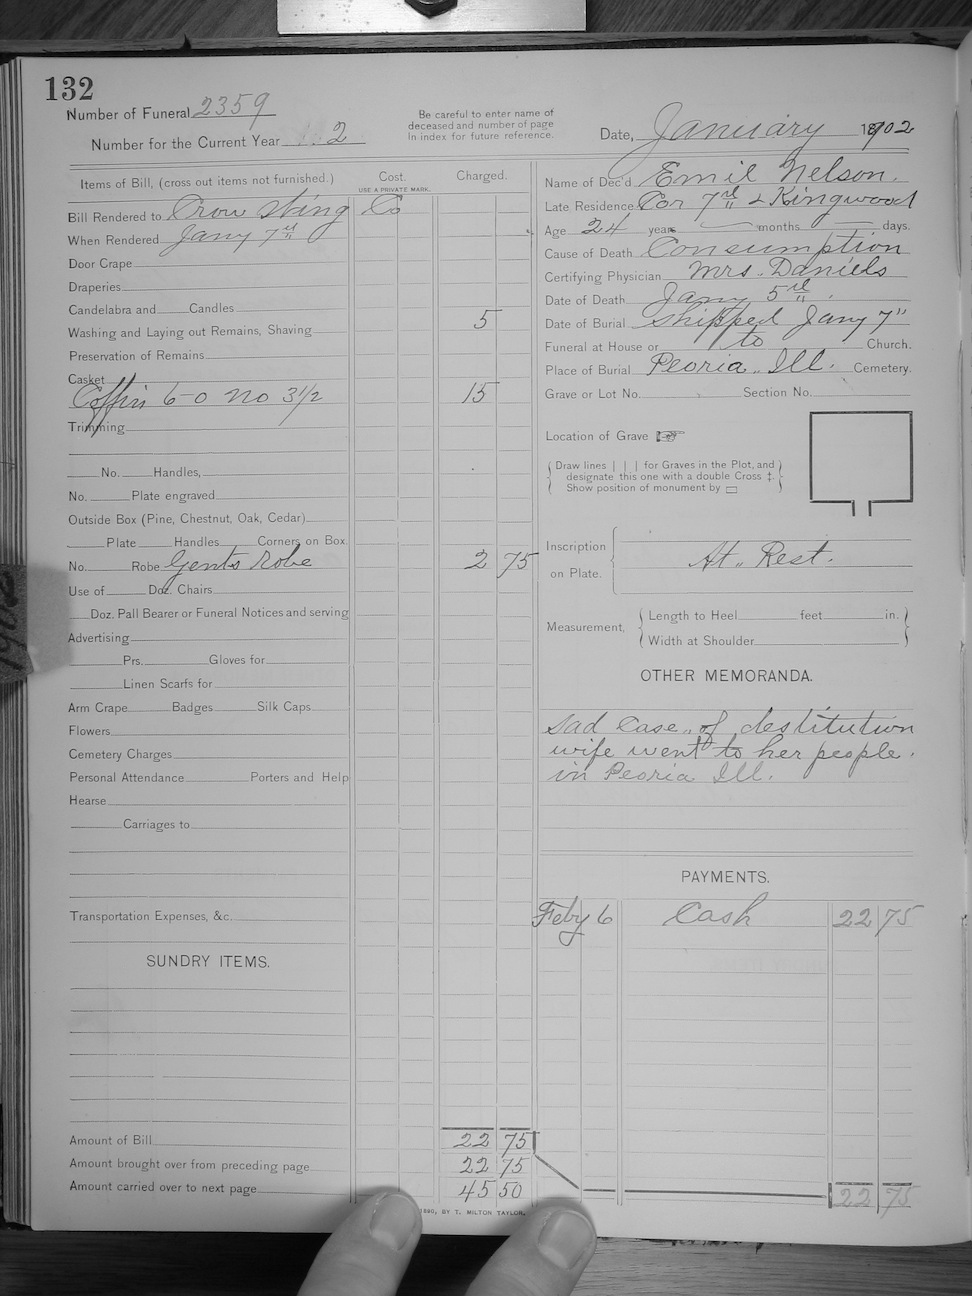 132
Number of Funeral 2359
Number for the Current Year 2
Be careful to enter name of
deceased and number of page
In index for future reference.
Date, January 1902
Items of Bill, (cross out items not furnished.) Cost. Charged.
USE A PRIVATE MARK.
Bill Rendered to Crow Wing Co
When Rendered Jany 7"
Door Crape
Draperies
Candelabra and Candles
Washing and Laying out Remains, Shaving 5
Preservation of Remains
Casket
Coffin 6-0 no 3 1/2 15
Trimming
No. Handles,
No. Plate engraved
Outside Box (Pine, Chestnut, Oak, Cedar)
Plate Handles Corners on Box
No. Robe Gents Robe 2 75
Use of Doz. Chairs
Doz. Pall Bearer or Funeral Notices and serving
Advertising
Prs. Gloves for
Linen Scarfs for
Arm Crape Badges Silk Caps
Flowers
Cemetery Charges
Personal Attendance Porters and Help
Hearse
Carriages to
Transportation Expenses, &c.
SUNDRY ITEMS.
Amount of Bill 22 75
Amount brought over from preceding page 22 75
Amount carried over to next page 45 50
1890, BY T. MILTON TAYLOR.
Name of Dec'd Emil Nelson.
Late Residence Cor 7" & Kingwood
Age 24 years months days.
Cause of Death Consumption
Certifying Physician Mrs. Daniels
Date of Death Jany 5"
Date of Burial Shipped Jany 7"
Funeral at House or to Church.
Place of Burial Peoria Ill. Cemetery.
Grave or Lot No. Section No.
Location of Grave ☞
Draw lines | | | for Graves in the Plot, and
designate this one with a double Cross ‡.
Show position of monument by ▭
Inscription
on Plate. At Rest.
Measurement, Length to Heel feet in.
Width at Shoulder
OTHER MEMORANDA.
Sad Case of destitution
wife went to her people
in Peoria Ill.
PAYMENTS.
Feby 6 Cash 22 75
22 75